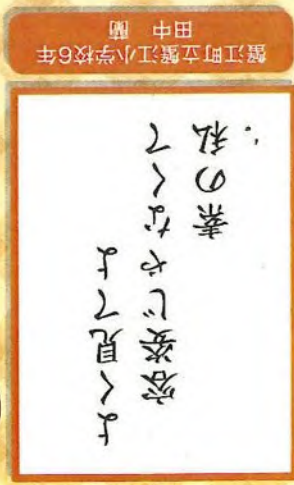 よく見てよ
容姿じゃなくて
素の私
蟹江町立蟹江小学校6年
田中 蘭